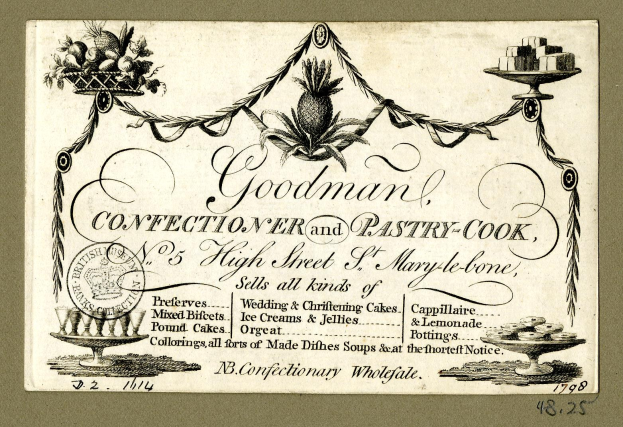 Goodman,
CONFECTIONER and PASTRY-COOK,
No. 5 High Street St. Mary-le-bone,
Sells all kinds of
Preserves.... Wedding & Chriſtening Cakes.. Cappillaire....
Mixed Biſcets.. Ice Creams & Jellies.... & Lemonade....
Pound Cakes. Orgeat.... Pottings....
Collorings, all ſorts of Made Diſhes Soups &c. at the ſhorteſt Notice.
NB. Confectionary Wholeſale.
BRITISH MUSEUM
D.2. 1614
1798
48.25